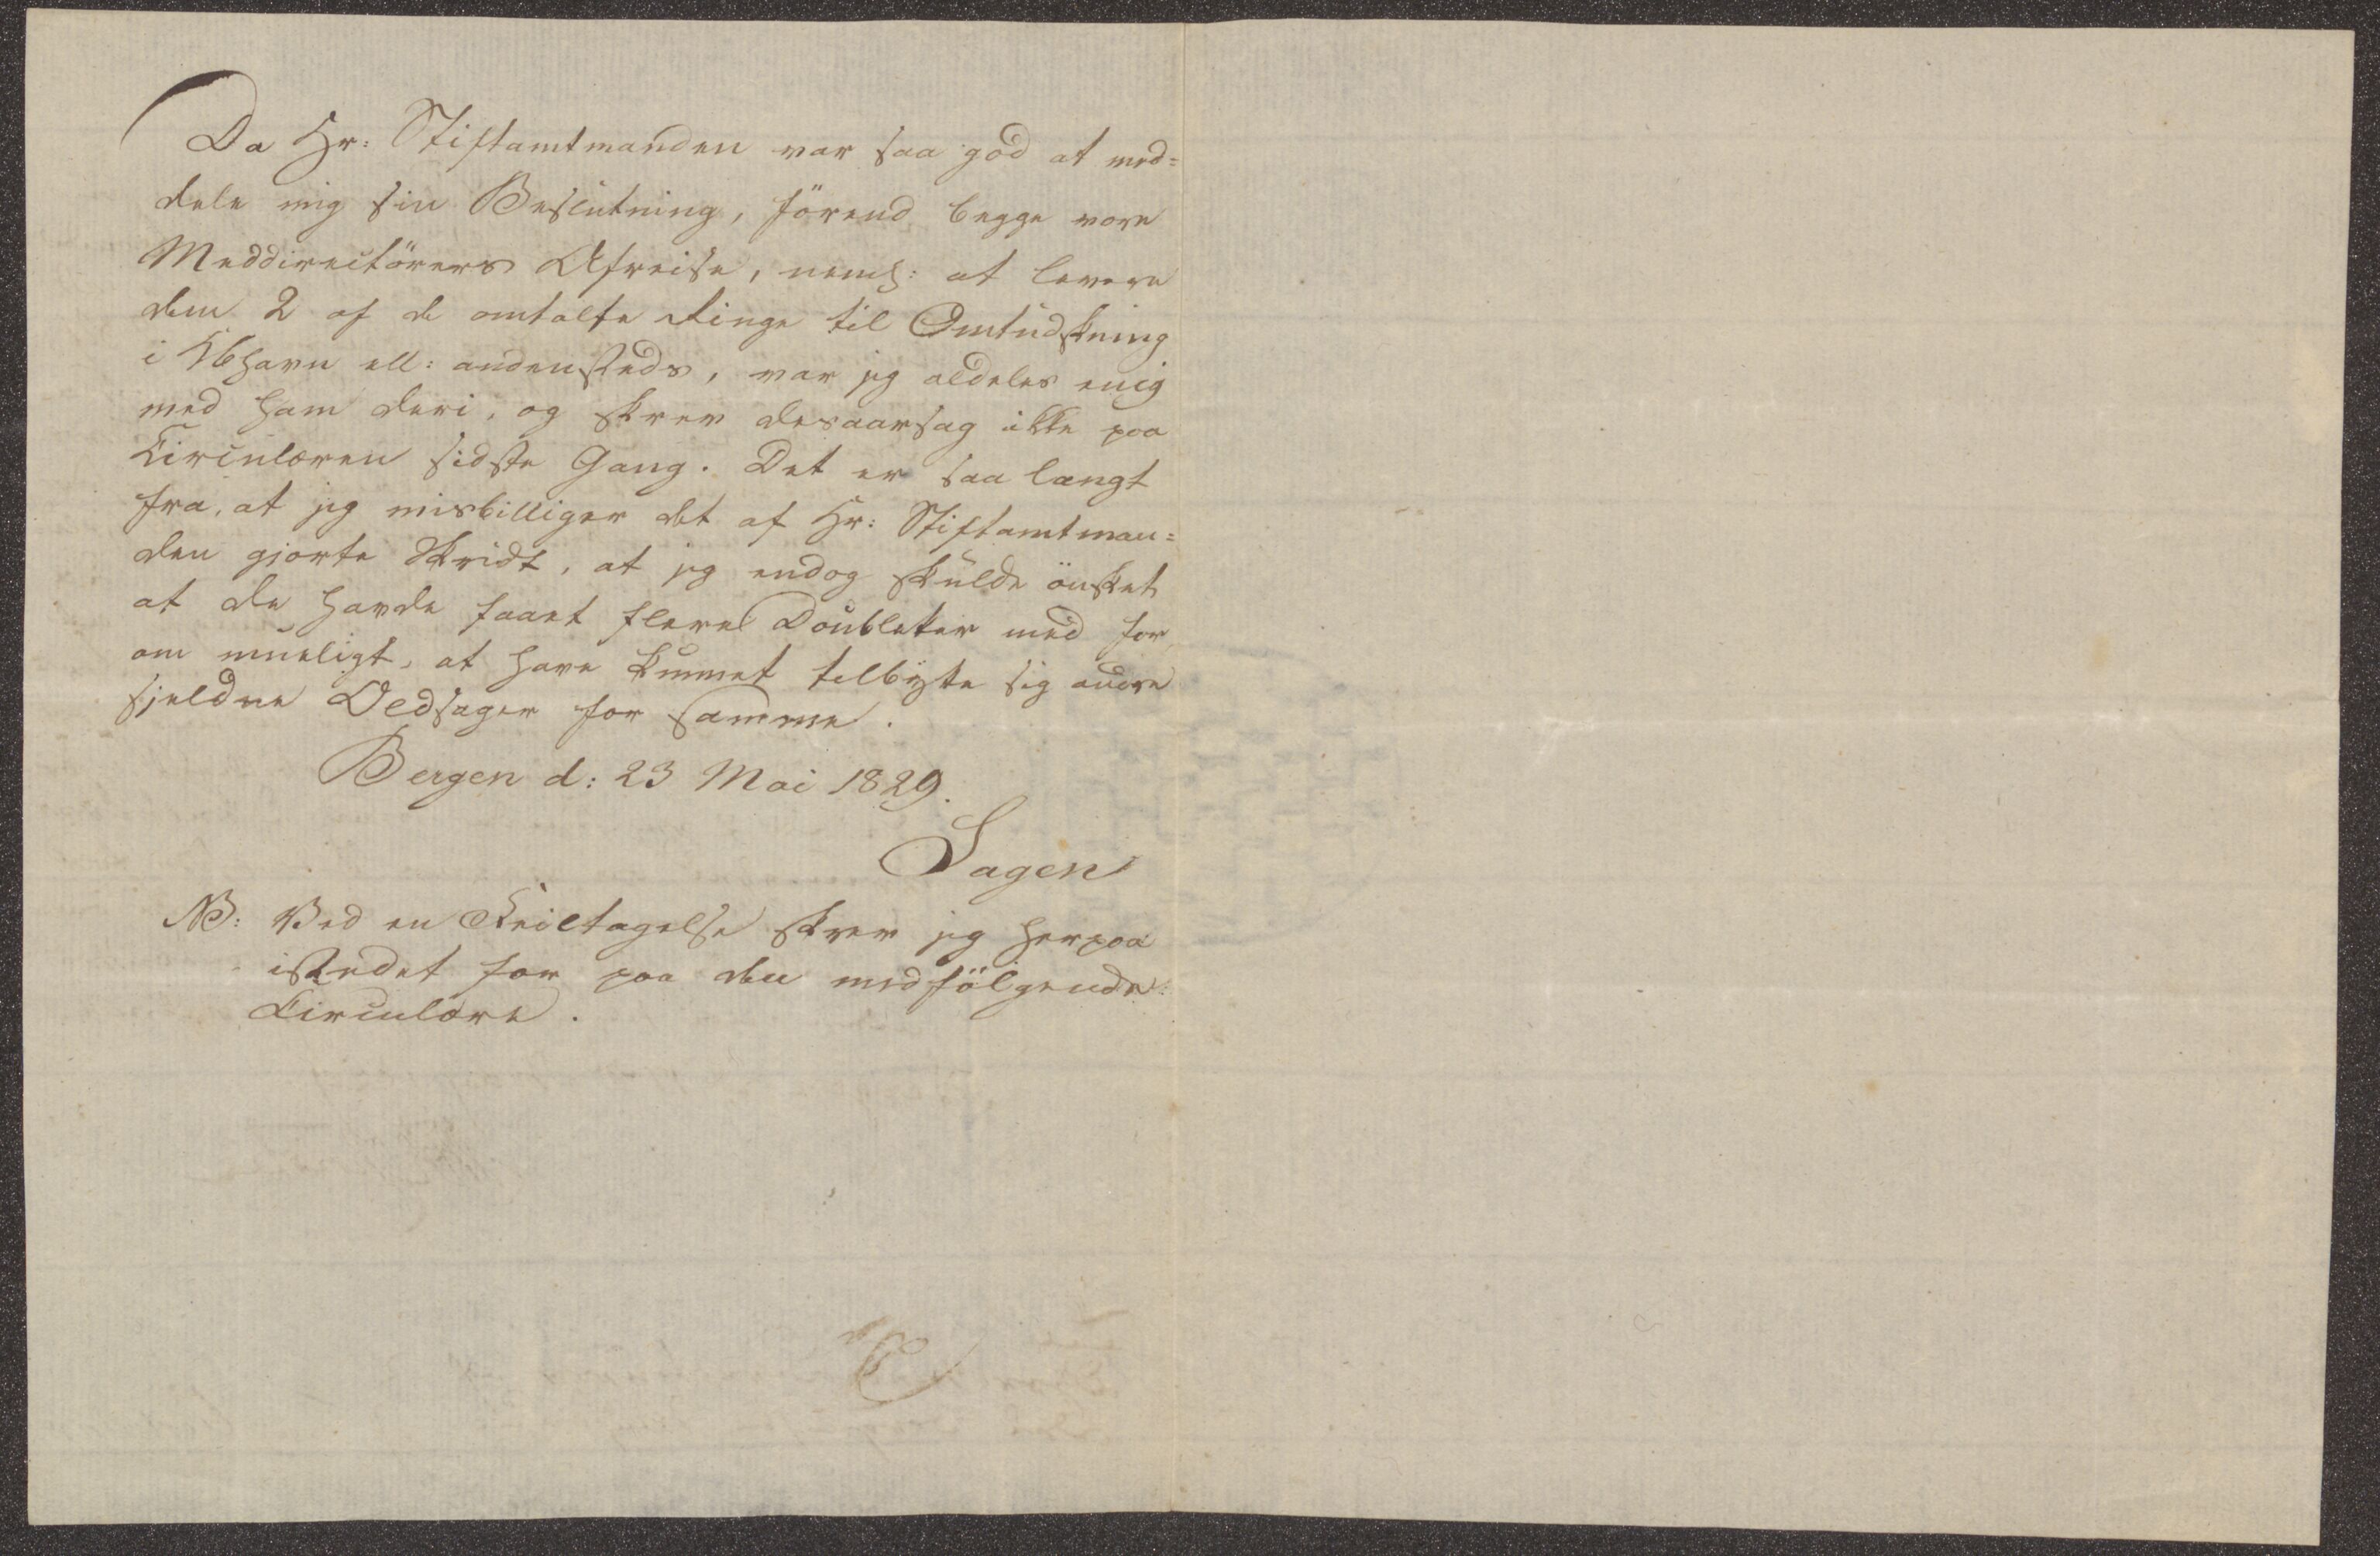 Da Hr: Stiftamtmanden var saa god at med=
dele mig sin Beslutning, förend begge vore
Meddirectörers Afreise, neml: at levere
dem 2 af de omtalte Ringe til Omtudskning
i Kbhavn ell: andensteds, var jeg aldeles enig
med ham deri, og skrev desaarsag ikke paa
Circulæren sidste Gang. Det er saa langt
fra, at jeg misbilliger det af Hr: Stiftamtman=
den gjorte Skridt, at jeg endog skulde önsket
at de havde faaet flere Doubletter med for,
om mueligt, at have kunnet tilbytte sig andre
sjeldne Oldsager for samme.
Bergen d: 23 Mai 1829.
Sagen
NB: Ved en Feiltagelse skrev jeg herpaa
istedet for paa den medfölgende
Circulære.